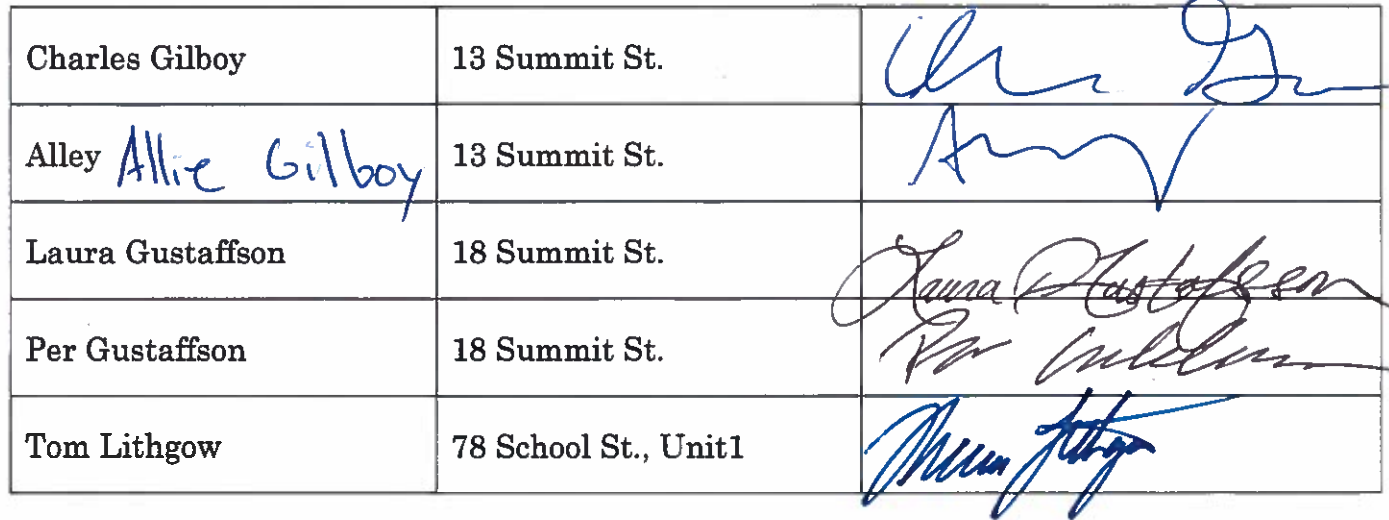 Charles Gilboy 13 Summit St.
Alley Allie Gilboy 13 Summit St.
Laura Gustaffson 18 Summit St. Laura Gustafsson
Per Gustaffson 18 Summit St. Per
Tom Lithgow 78 School St., Unit1 Lithgow